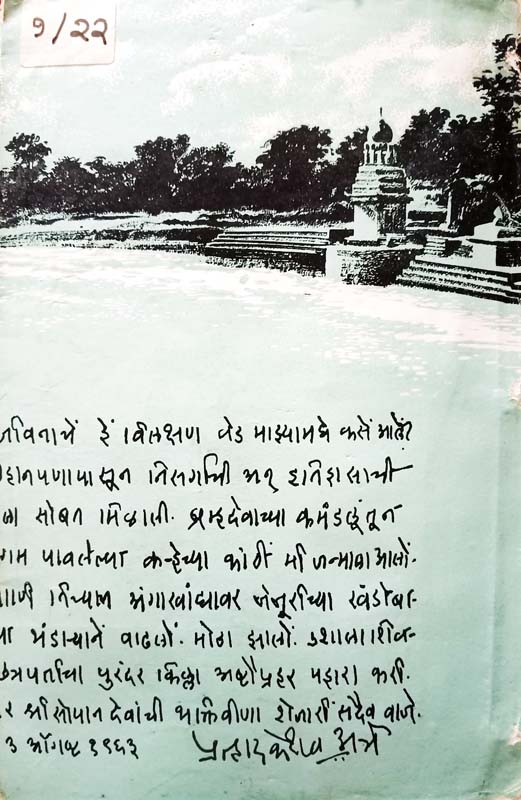 9/22
जीवनाचें हें विलक्षण वेड माझ्यामधे कसें आलें?
लहानपणापासून निसर्गाची अन् इतिहासाची
मला सोबत मिळाली. ब्रम्हदेवाच्या कमंडलूंतून
उगम पावलेल्या कऱ्हेच्या कांठीं मी जन्माला आलों.
आणि अंगाखांद्यावर जेजूरीच्या खंडोबा-
च्या भंडाऱ्यानें वाढलों. मोठा झालों. उशाला शिव-
छत्रपतींचा पुरंदर किल्ला अष्टौप्रहर पहारा करी.
तर श्रीसोपानदेवांची भक्तिवीणा शेजारीं सदैव वाजे.
३ ऑगष्ट १९६३ प्रल्हाद केशव अत्रे